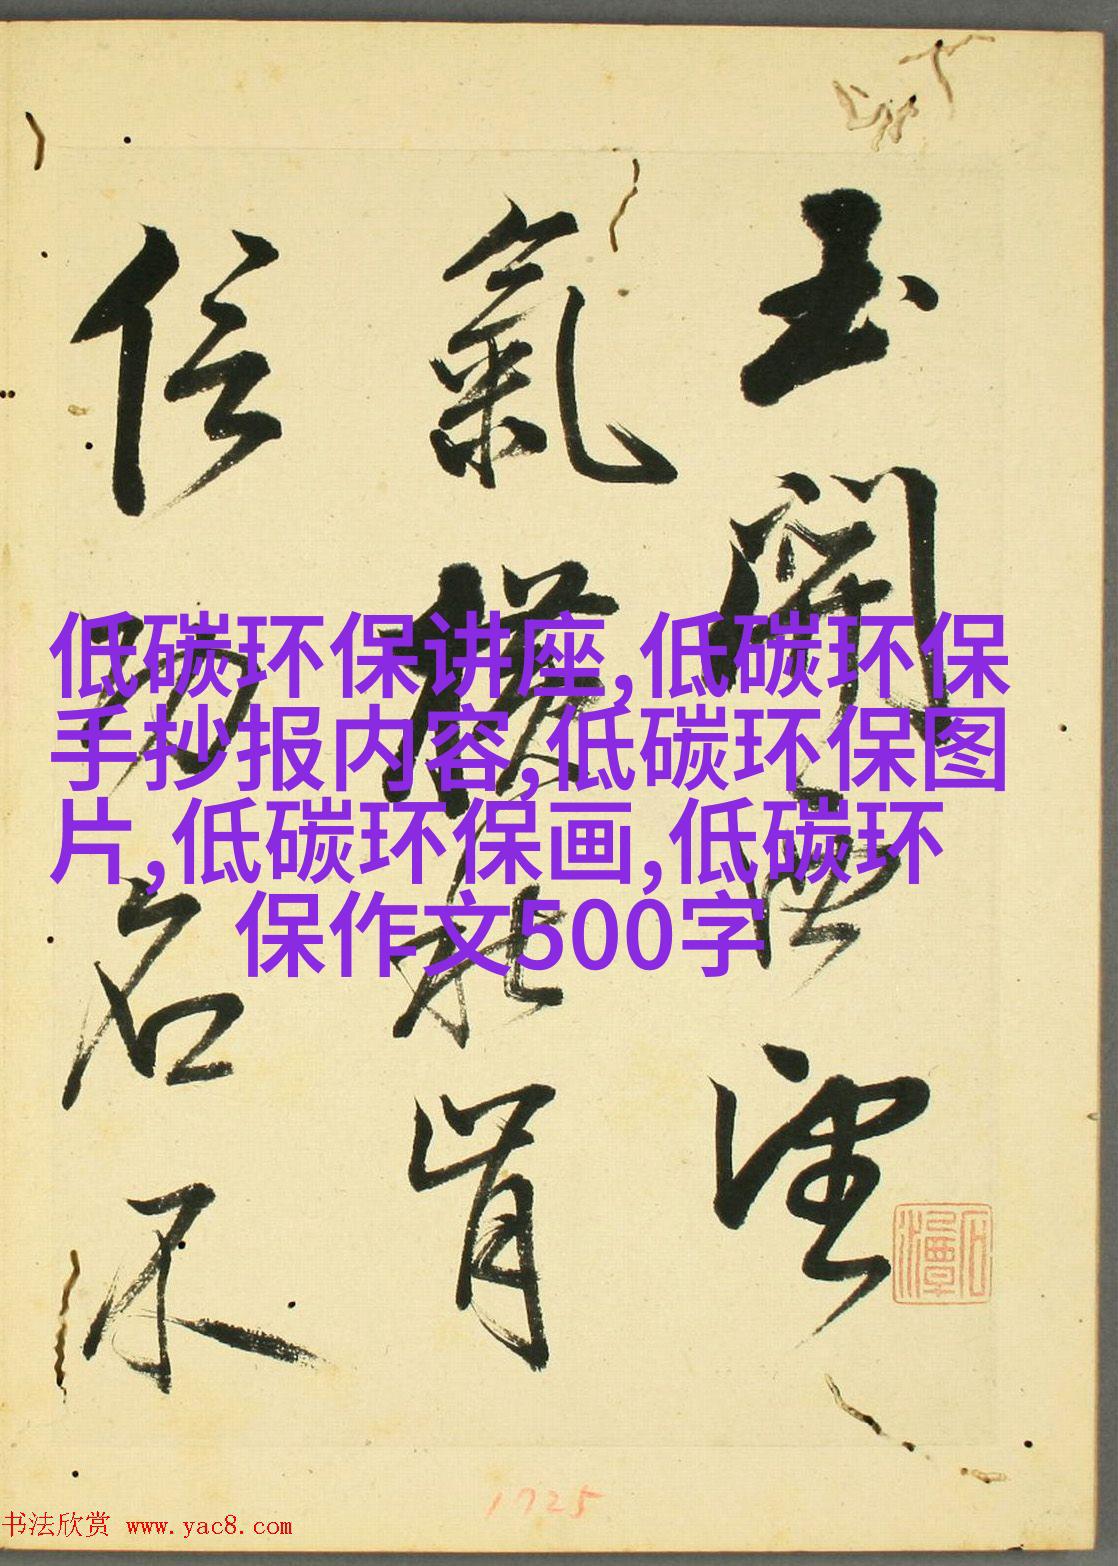 玉關西望
氣橫秋肯
信功名不
低碳环保讲座,低碳环保
手抄报内容,低碳环保图
片,低碳环保画,低碳环
保作文500字
1725
书法欣赏 www.yac8.com